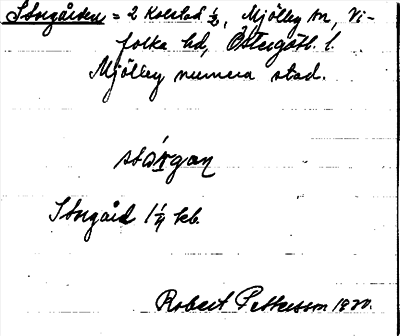 Storgården = 2 Kolstad 1/2, Mjölby sn, Vi-
folka hd, Östergötl. l.
Mjölby numera stad.
Storgård 1 1/4 kb.
Robert Pettersson 1920.